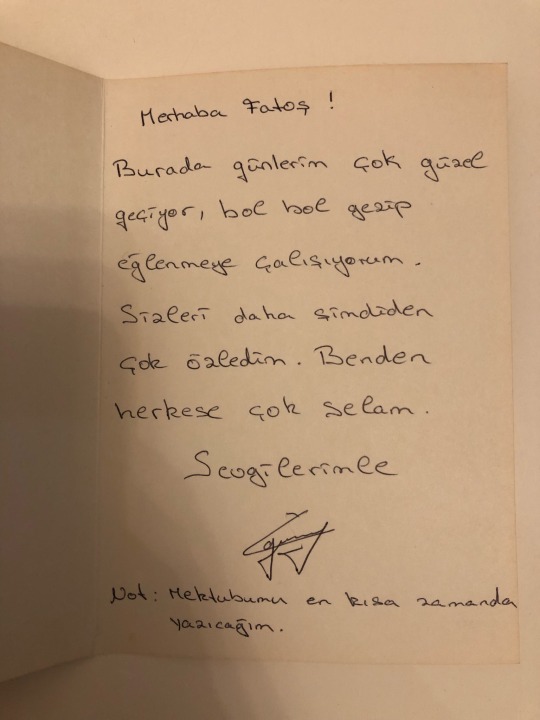 Merhaba Fatoş !
Burada günlerim çok güzel
geçiyor, bol bol gezip
eğlenmeye çalışıyorum.
Sizleri daha şimdiden
çok özledim. Benden
herkese çok selam.
Sevgilerimle
Not: Mektubumu en kısa zamanda
yazıcağım.